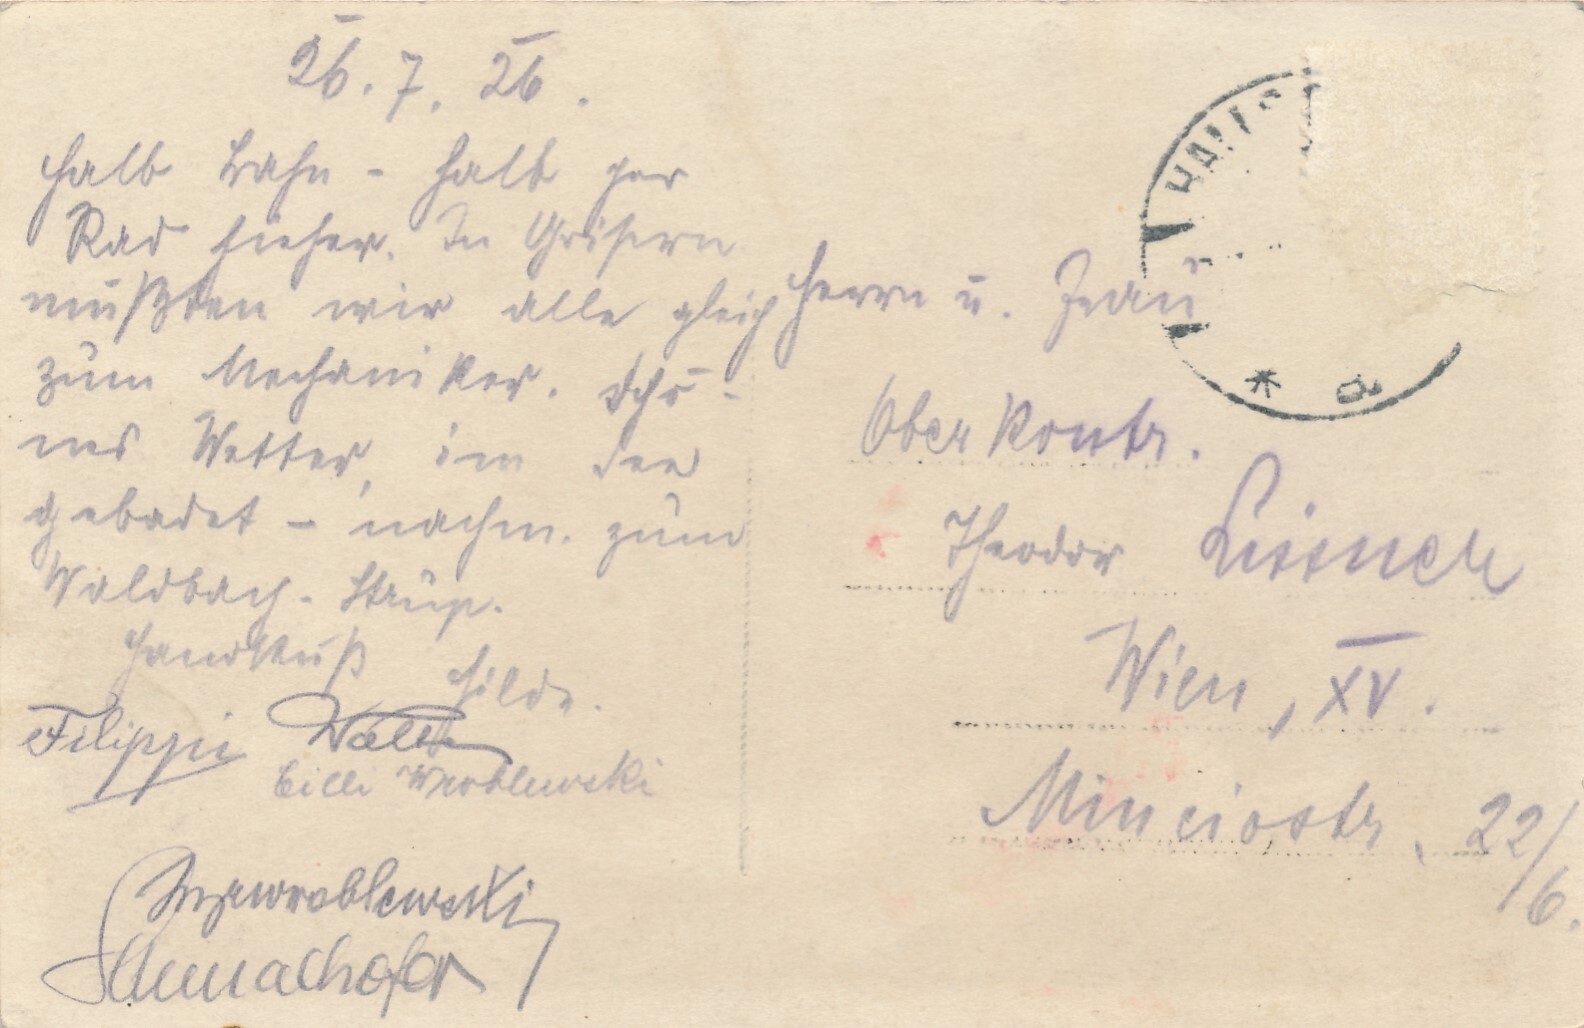 26. 7. 26.
Halb Bahn - halb per
Rad hieher. In Goisern
mußten wir alle gleich
zum Mechaniker. Schö-
nes Wetter, im See
gebadet - nachm. zum
Waldbach-Strup.
Handkuß Hilde.
Filippi
Cilli Wroblewski
Wroblewski
HALLS
Herrn u. Frau
Oberkontr.
Theodor
Wien, XV.
Minciostr. 22/6.
* a